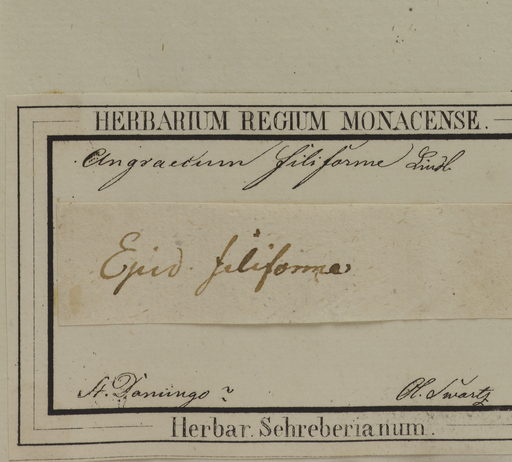 HERBARIUM REGIUM MONACENSE.
Angraecum filiforme Lindl.
Epid. filiforme
St. Domingo?
Ol. Swartz
Herbar. Schreberianum.